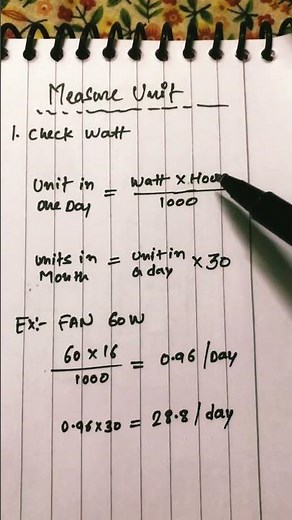 Measure Unit
1. Check Watt
Unit in one Day = Watt × Hour / 1000
Units in Month = Unit in a day × 30
Ex:- FAN 60W
60 × 16 / 1000 = 0.96 / Day
0.96×30 = 28.8 / day